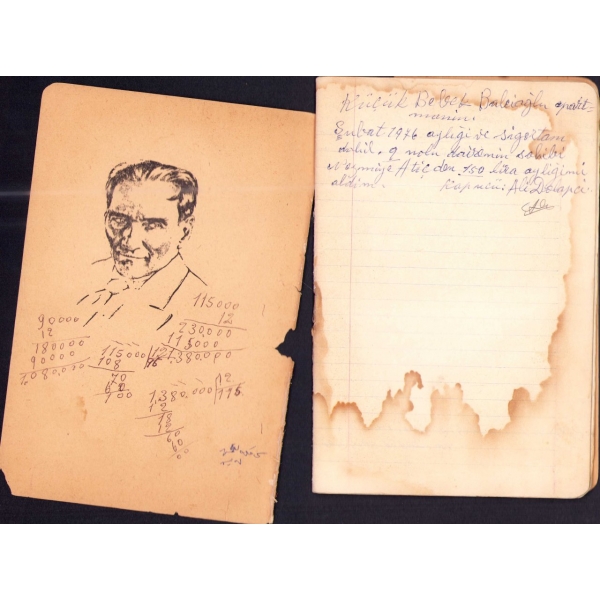 115000
12
230,000
115000
1.380.000
90000
12
180000
90000
1080.000
115000 12
108
70
100
1.380.000 12
12
18
Küçük Bebek Balcıoğlu apart-
manın.
Şubat 1976 aylığı ve sigortam
dahil. 9 nolu dairenin sahibi
Atiç den 150 lira aylığımı
aldım. Kapıcı: Ali